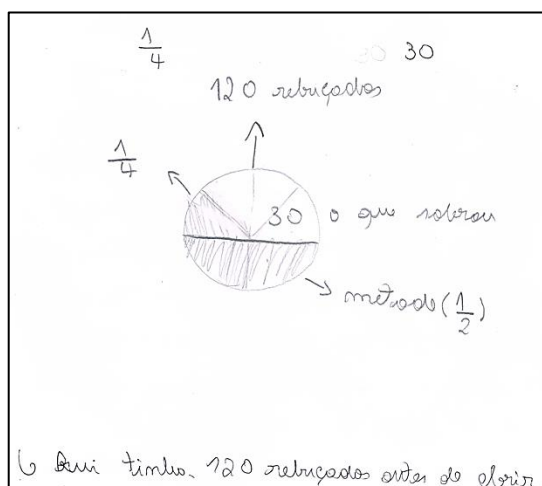 1/4 30 30
120 rebuçados
1/4
30 o que sobrou
metade (1/2)
↳ Rui tinha 120 rebuçados antes de abrir